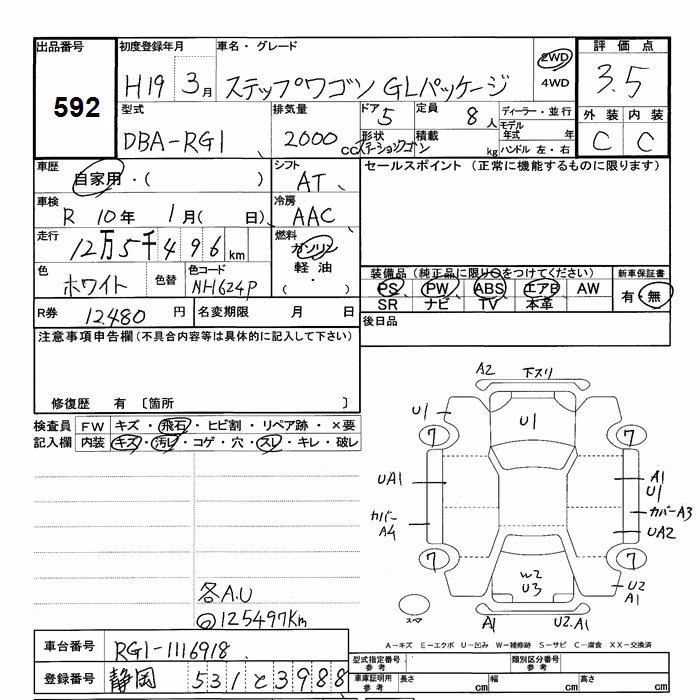 出品番号
592
初度登録年月
H19 3月
車名・グレード
ステップワゴン GLパッケージ
2WD
4WD
評価点
3.5
型式
DBA-RG1
排気量
2000cc
ドア 5
形状 ステーションワゴン
定員 8人
積載 kg
ディーラー・並行
モデル年式 年
ハンドル 左・右
外装 内装
C C
車歴
自家用・( )
シフト
AT
セールスポイント (正常に機能するものに限ります)
車検
R 10年 1月( 日)
冷房
AAC
走行
12万5千496km
燃料
ガソリン
軽油
( ・ )
色
ホワイト
色替
色コード
NH624P
装備品(純正品に限り○をつけてください)
PS PW ABS エアB AW
SR ナビ TV 本革
新車保証書
有・無
R券 12480 円
名変期限 月 日
後日品
注意事項申告欄(不具合内容等は具体的に記入して下さい)
修復歴 有 〔箇所 〕
検査員記入欄
FW キズ・飛石・ヒビ割・リペア跡・×要
内装 キズ・汚レ・コゲ・穴・スレ・キレ・破レ
A2 下スリ
U1 U1
7 7
UA1 A1
U1
カバーA4 カバーA3
UA2
7 7
W2
U3
U2
A1
スペア A1 U2.A1
各A.U
◎125497Km
A-キズ E-エクボ U-凹み W-補修跡 S-サビ C-腐食 XX-交換済
車台番号 RG1-1116918
型式指定番号 参考
類別区分番号 参考
登録番号 静岡 531 と 3988
車庫証明用 参考 長さ cm 幅 cm 高さ cm